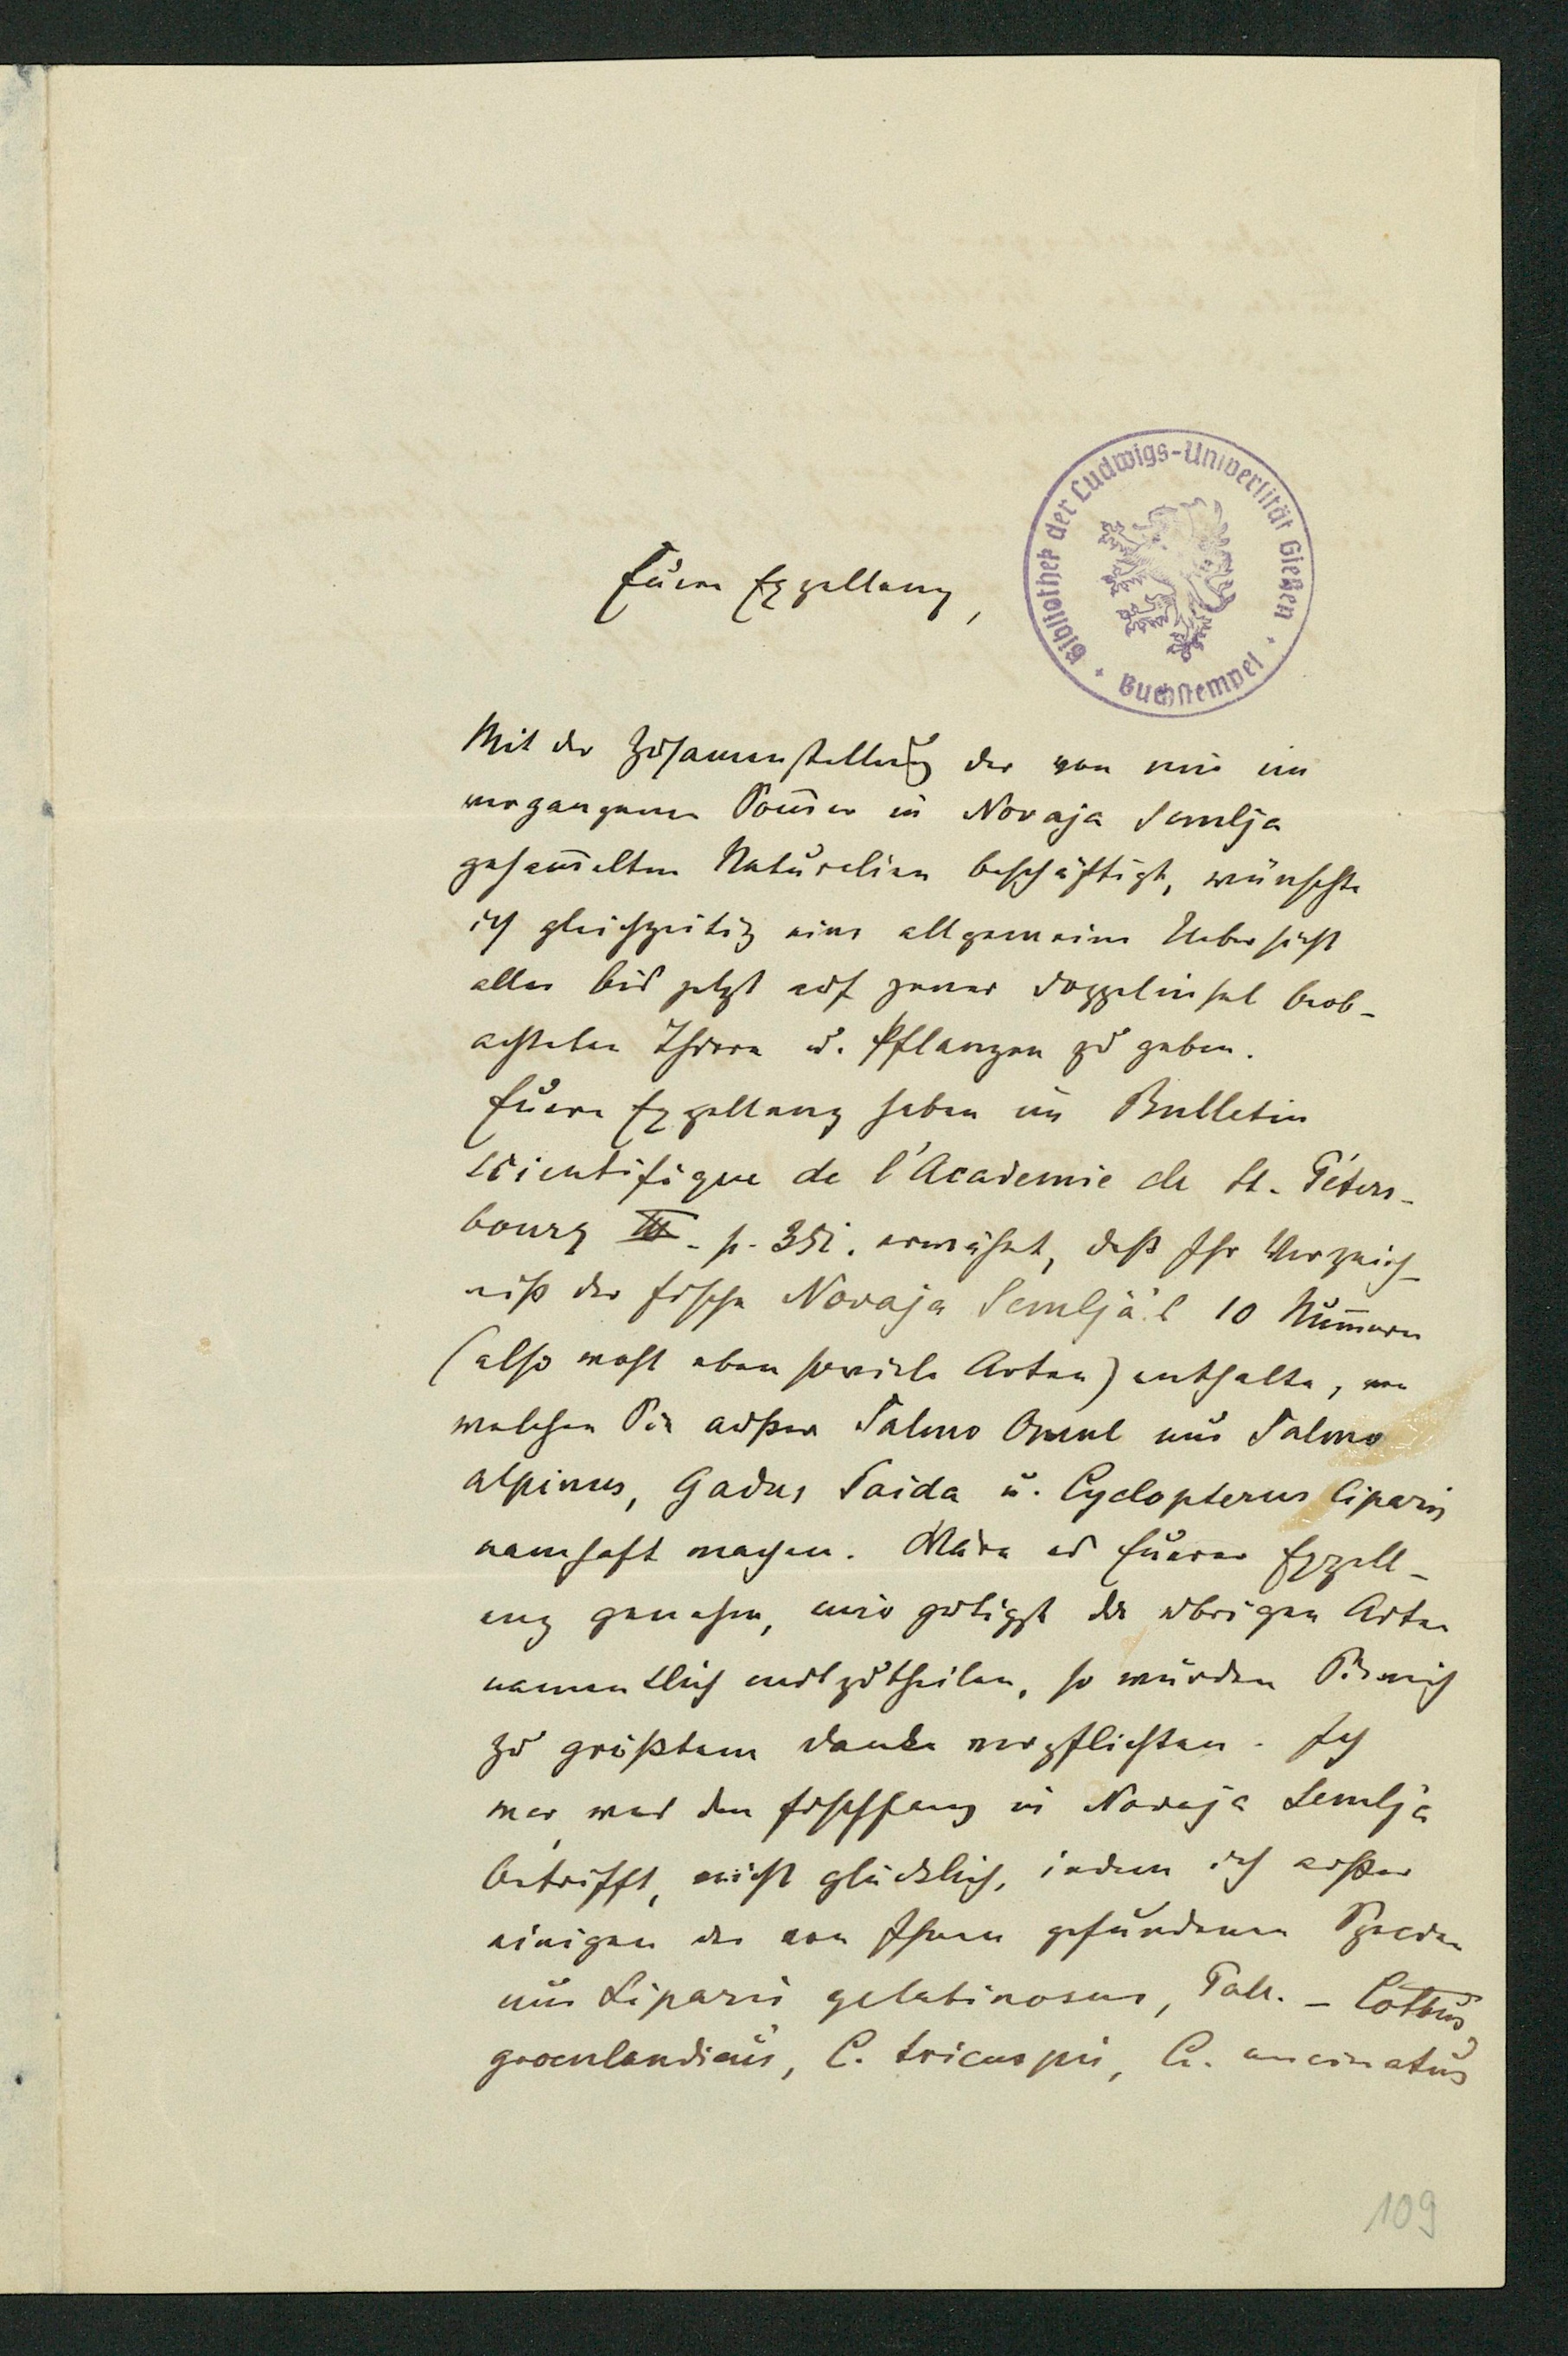 Bibliothek der Ludwigs-Universität Gießen
Buchstempel
Euere Exzellenz,
Mit der Zusam̄enstellung der von mir im
vergangenen Som̄er in Novaja Semlja
gesam̄elten Naturalien beschäftigt, wünschte
ich gleichzeitig eine allgemeine Uebersicht
aller bis jetzt auf jener Doppelinsel beob-
achteten Thiere u. Pflanzen zu geben.
Euere Exzellenz haben im Bulletin
scientifique de l'Academie de St. Péters-
bourg III. p. 351. erwähnt, daß Ihr Verzeich-
niß der Fische Novaja Semlja's 10 Num̄ern
(also wohl eben soviele Arten) enthalte, von
welchen Sie außer Salmo Omul nur Salmo
alpinus, Gadus Saida u. Cyclopterus Liparis
namhaft machen. Wäre es Euerer Exzell-
enz genehm, mir gütigst die übrigen Arten
namentlich mitzutheilen, so würden Sie mich
zu größtem Danke verpflichten. Ich
war, was den Fischfang in Novaja Semlja
betrifft, nicht glücklich, indem ich außer
einigen der von Ihnen gefundenen Species
nur Liparis gelatinosus, Pall. - Cottus
groenlandicus, C. tricuspis, C. uncinatus
109